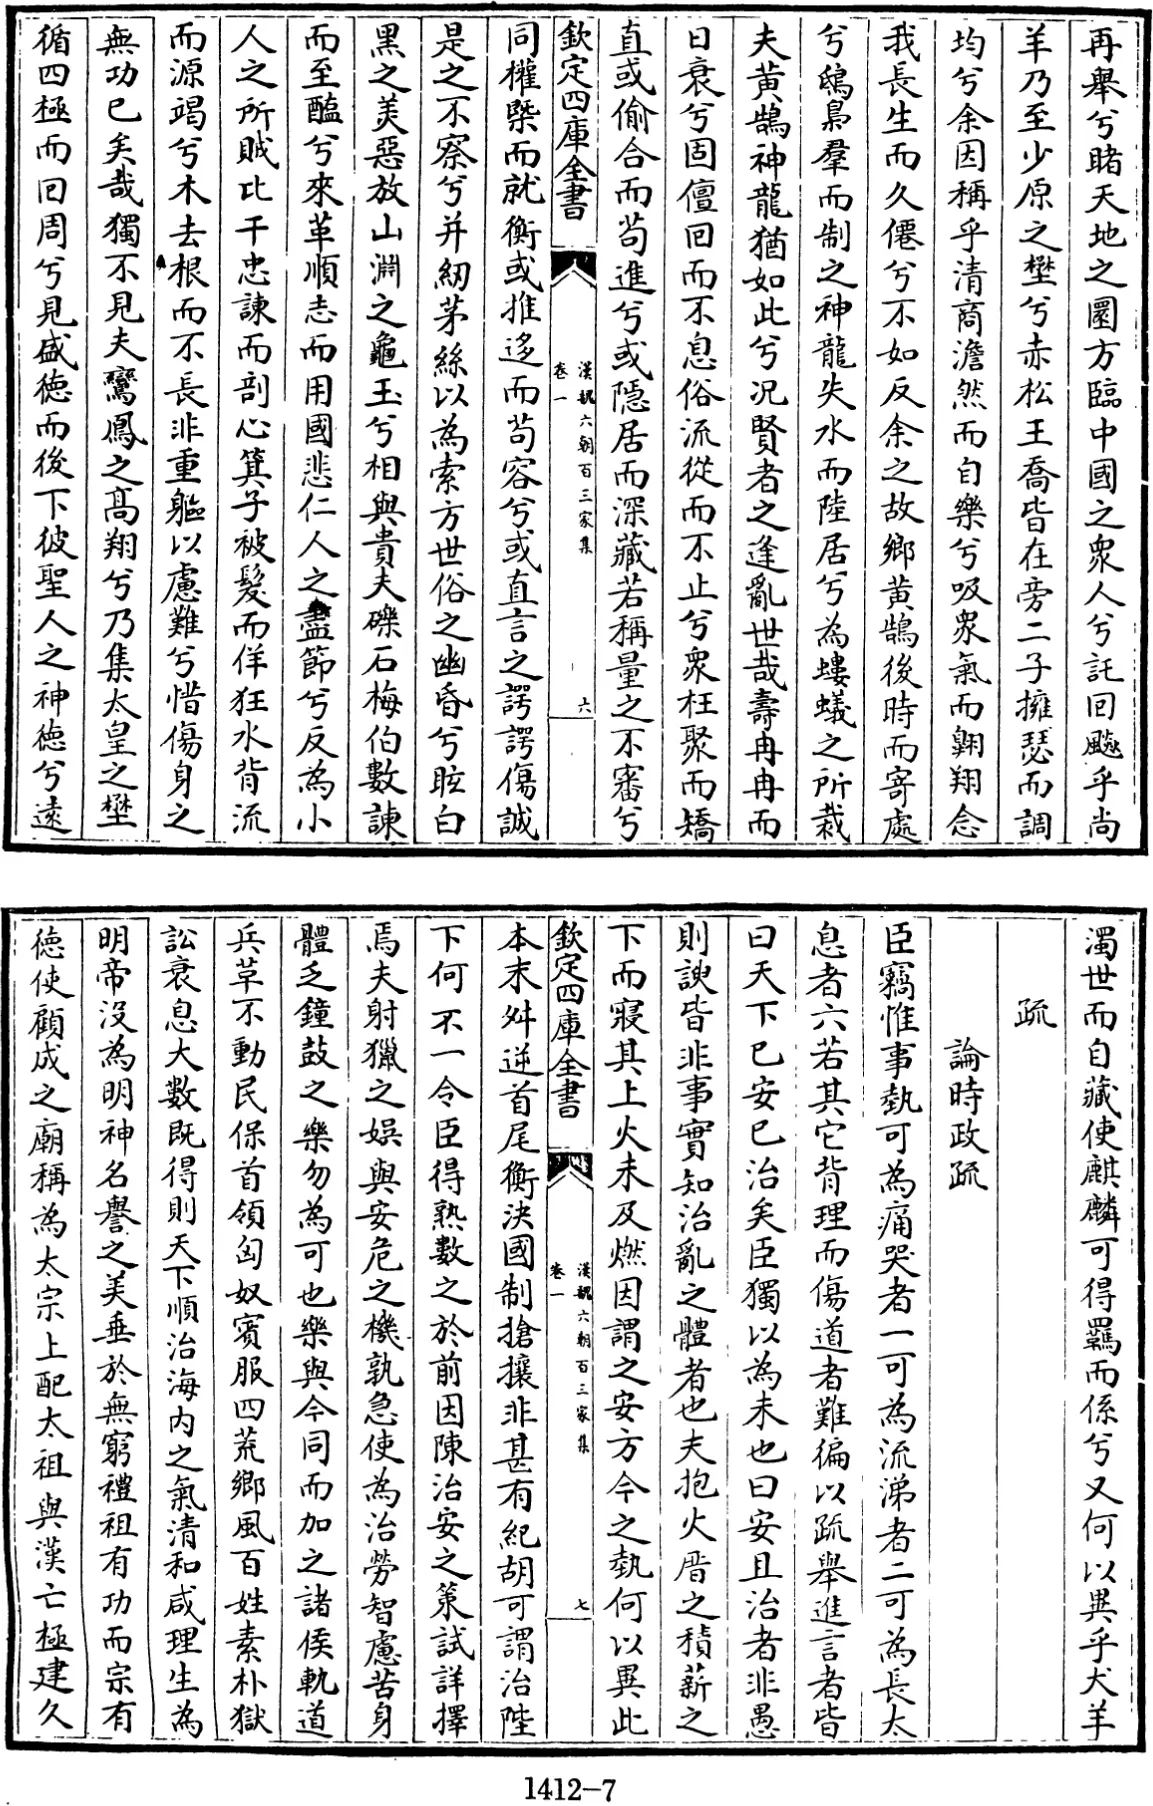 再舉兮睹天地之圜方臨中國之衆人兮託回飈乎尚
羊乃至少原之壄兮赤松王喬皆在旁二子擁瑟而調
均兮余因稱乎清商澹然而自樂兮吸衆氣而翺翔念
我長生而久僊兮不如反余之故鄉黄鵠後時而寄處
兮鴟梟羣而制之神龍失水而陸居兮為螻蟻之所裁
夫黄鵠神龍猶如此兮况賢者之逢亂世哉壽冉冉而
日衰兮固儃回而不息俗流從而不止兮衆枉聚而矯
直或偷合而苟進兮或隠居而深藏若稱量之不審兮
欽定四庫全書
漢魏六朝百三家集
卷一
六
同權槩而就衡或推迻而苟容兮或直言之諤諤傷誠
是之不察兮并紉茅絲以為索方世俗之幽昏兮眩白
黒之美惡放山淵之龜玉兮相與貴夫礫石梅伯數諫
而至醢兮來革順志而用國悲仁人之盡節兮反為小
人之所賊比干忠諫而剖心箕子被髮而佯狂水背流
而源竭兮木去根而不長非重軀以慮難兮惜傷身之
無功已矣哉獨不見夫鸞鳳之髙翔兮乃集太皇之壄
循四極而回周兮見盛徳而後下彼聖人之神徳兮逺
濁世而自藏使麒麟可得羈而係兮又何以異乎犬羊
疏
論時政疏
臣竊惟事埶可為痛哭者一可為流涕者二可為長太
息者六若其它背理而傷道者難徧以疏舉進言者皆
曰天下已安已治矣臣獨以為未也曰安且治者非愚
則諛皆非事實知治亂之體者也夫抱火厝之積薪之
下而寢其上火未及燃因謂之安方今之埶何以異此
欽定四庫全書
漢魏六朝百三家集
卷一
七
本末舛逆首尾衡決國制搶攘非甚有紀胡可謂治陛
下何不一令臣得熟數之於前因陳治安之策試詳擇
焉夫射獵之娱與安危之機孰急使為治勞智慮苦身
體乏鐘鼓之樂勿為可也樂與今同而加之諸侯軌道
兵革不動民保首領匈奴賓服四荒鄉風百姓素朴獄
訟衰息大數既得則天下順治海内之氣清和咸理生為
明帝没為明神名譽之美垂於無窮禮祖有功而宗有
徳使顧成之廟稱為太宗上配太祖與漢亡極建久
1412-7